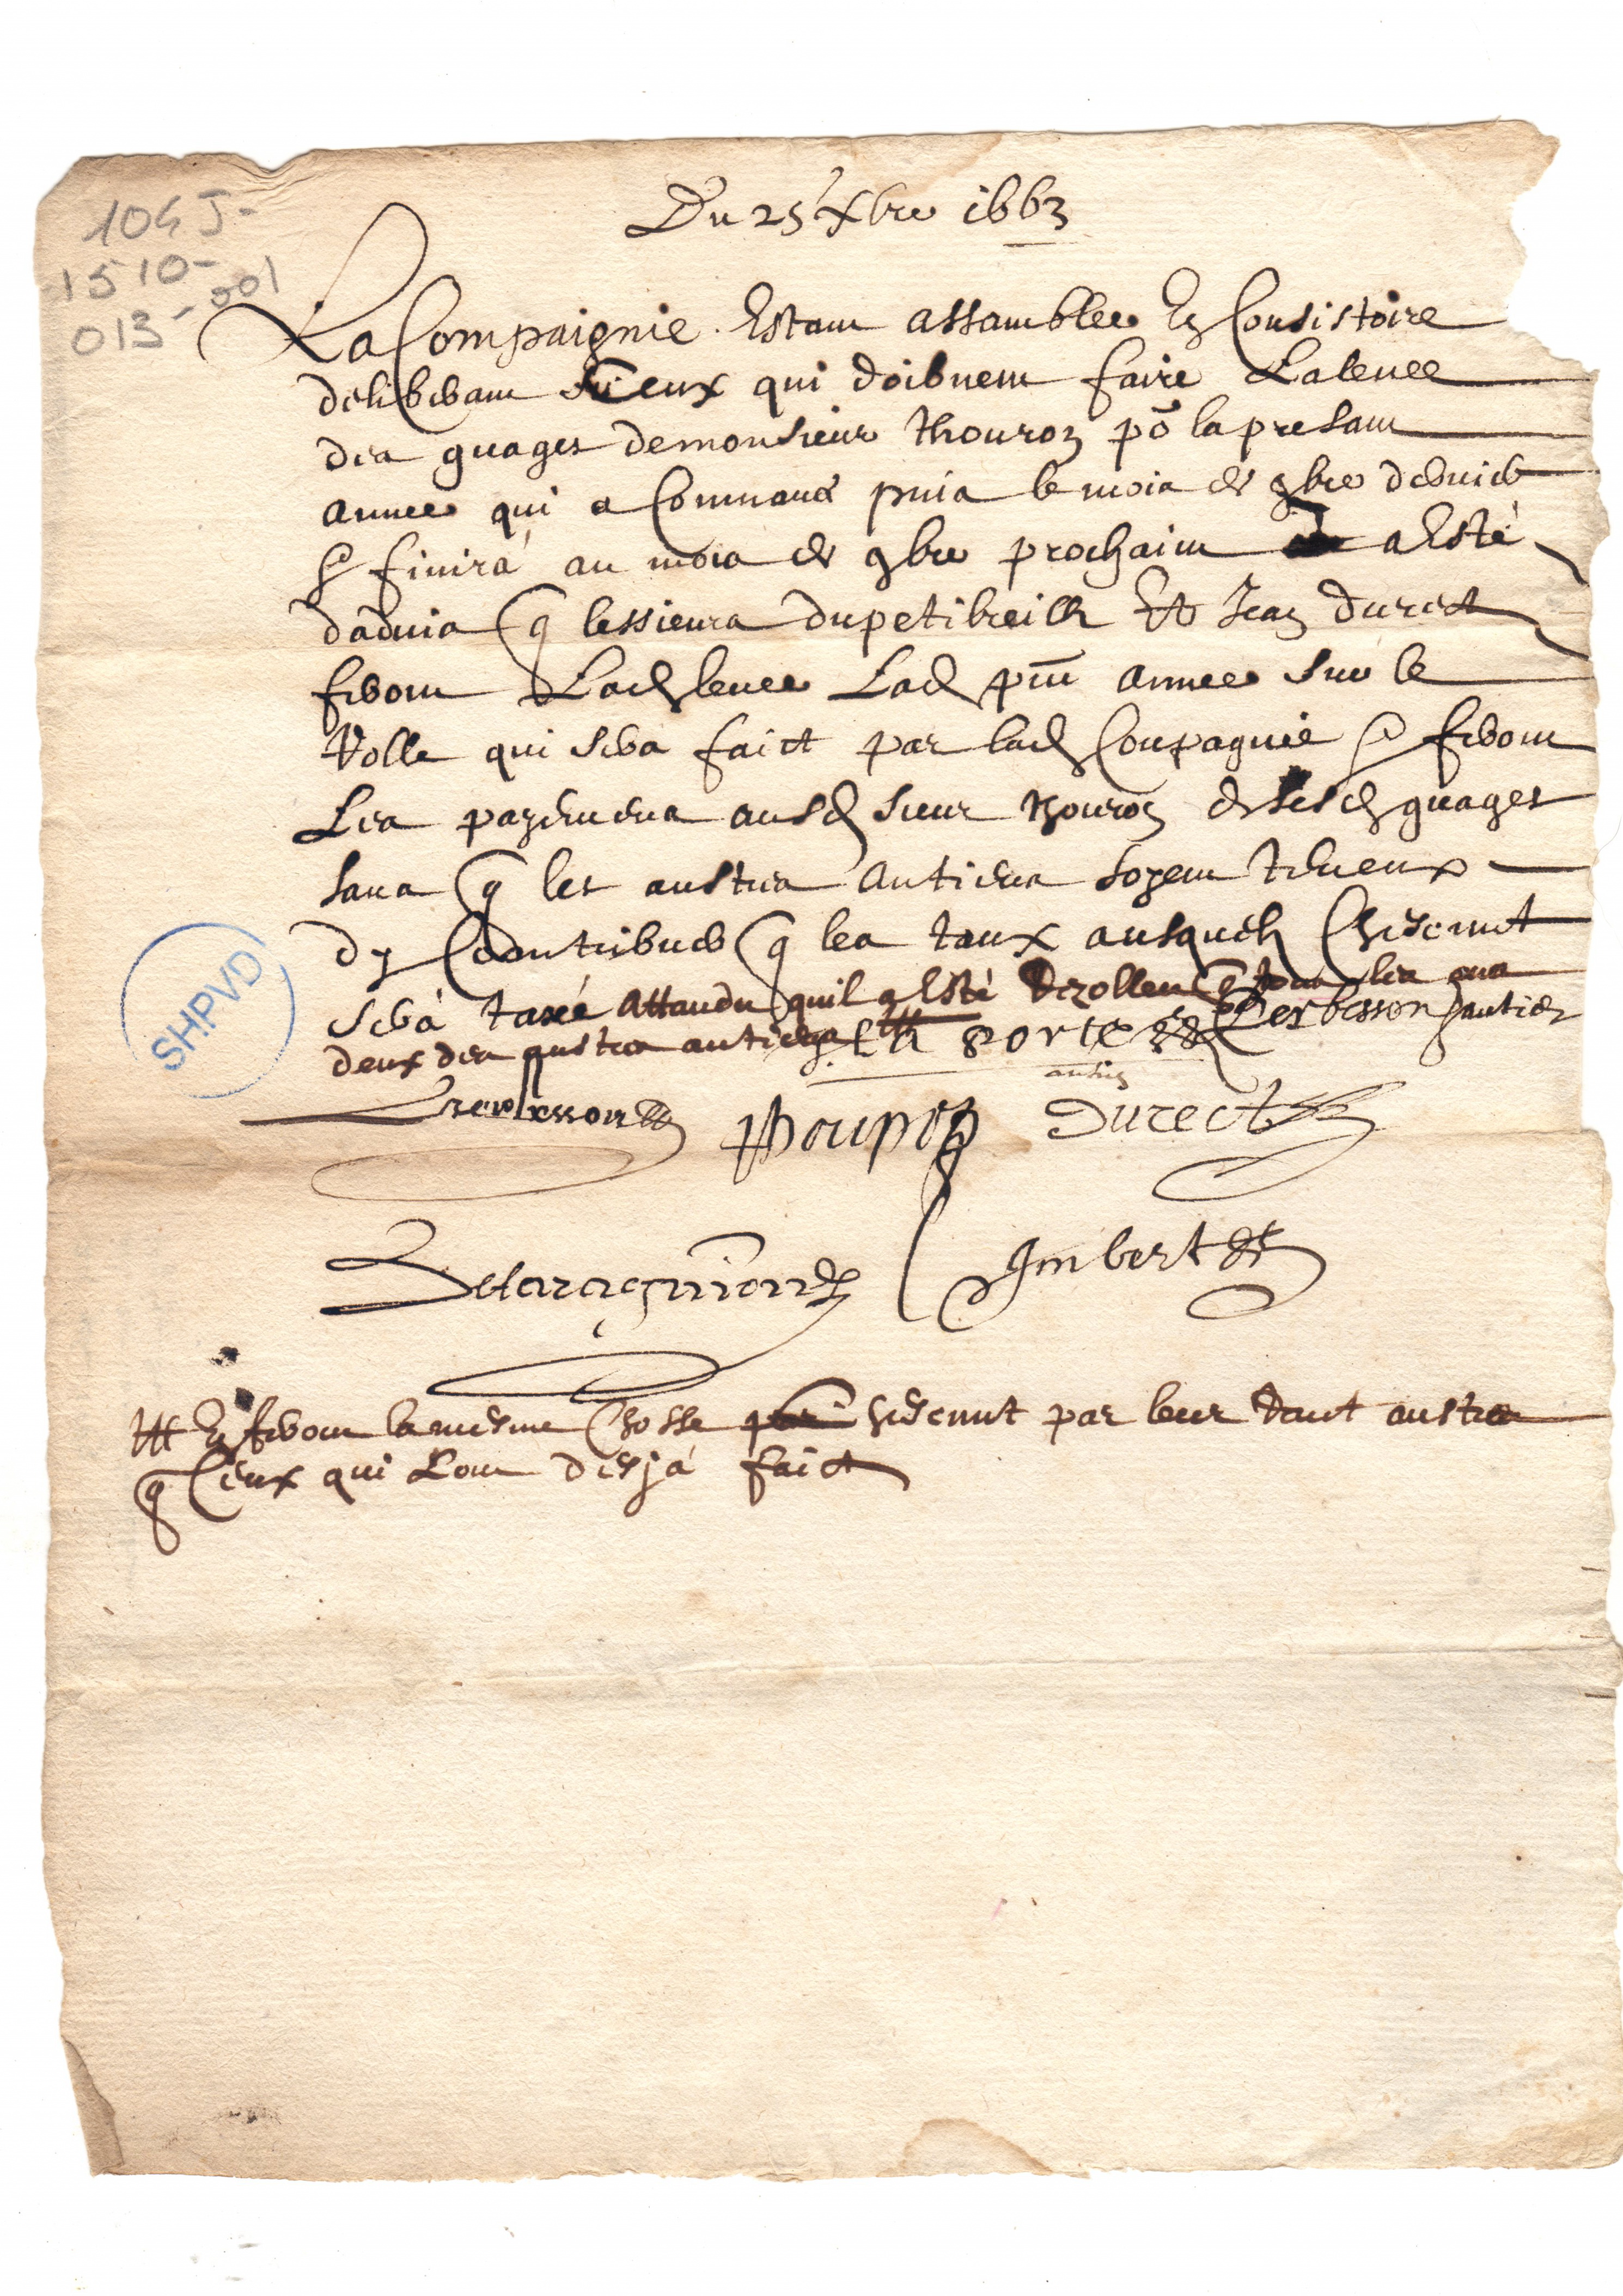 104 J-
1510-
013-001
Du 25 Xbre 1663
La Compaignie Estant assamblee En Consistoire
deliberant Ceux qui doibuent faire La leuee
des guages de monsieur Thouron po la presant
annee qui a Commancé puis le mois de 9bre dernier
& finira au mois de 9bre prochain a Esté
daduis q les sieurs du petibreilh Et Jean durect
feront Lad leuee Lad pnt annee sur le
Rolle qui sera faict par lad Compagnie & feront
Les payemens ausd sieur Thouron de sesd guages
sans q les austres antiens soyent teneux
dy Contribuer q les taux ausquels Chescunt
sera taxé Attandu quil a Esté Rezolleu q tous les ans
deux des austres antiens La Porte Lesbesson antien
antien
Thouron Durect
Imbert
En feront la mesme Chosse chescunt par leur tout austres
q Ceux qui Lont desja faict
SHPVD